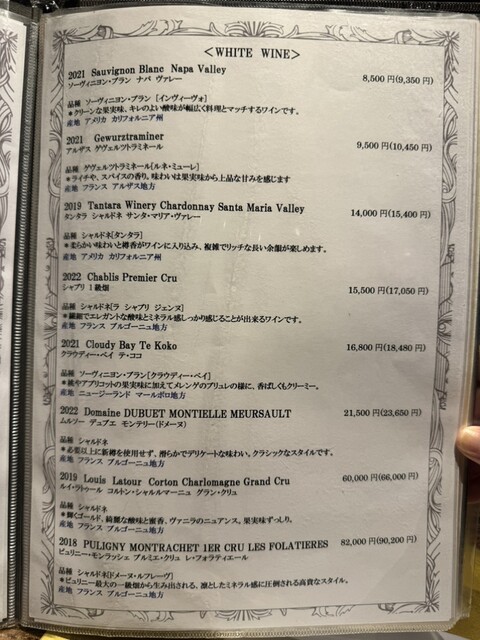 <WHITE WINE>
2021 Sauvignon Blanc Napa Valley
ソーヴィニヨン・ブラン ナパ ヴァレー
8,500円(9,350円)
品種 ソーヴィニヨン・ブラン [インヴィーヴォ]
*クリーンな果実味、キレのよい酸味が幅広く料理とマッチするワインです。
産地 アメリカ カリフォルニア州
2021 Gewurztraminer
アルザス ゲヴェルツトラミネール
9,500円(10,450円)
品種 ゲヴェルツトラミネール[ルネ・ミューレ]
*ライチや、スパイスの香り、味わいは果実味から上品な甘みを感じます
産地 フランス アルザス地方
2019 Tantara Winery Chardonnay Santa Maria Valley
タンタラ シャルドネ サンタ・マリア・ヴァレー
14,000円(15,400円)
品種 シャルドネ[タンタラ]
*柔らかい味わいと樽香がワインに入り込み、複雑でリッチな長い余韻が楽しめます。
産地 アメリカ カリフォルニア州
2022 Chablis Premier Cru
シャブリ 1級畑
15,500円(17,050円)
品種 シャルドネ[ラ シャブリ ジェンヌ]
*繊細でエレガントな酸味とミネラル感しっかり感じることが出来るワインです。
産地 フランス ブルゴーニュ地方
2021 Cloudy Bay Te Koko
クラウディー・ベイ テ・ココ
16,800円(18,480円)
品種 ソーヴィニヨン・ブラン[クラウディー・ベイ]
*桃やアプリコットの果実味に加えてメレンゲのブリュレの様に、香ばしくもクリーミー。
産地 ニュージーランド マールボロ地方
2022 Domaine DUBUET MONTIELLE MEURSAULT
ムルソー デュブエ モンテリー(ドメーヌ)
21,500円(23,650円)
品種 シャルドネ
*必要以上に新樽を使用せず、滑らかでデリケートな味わい。クラシックなスタイルです。
産地 フランス ブルゴーニュ地方
2019 Louis Latour Corton Charlomagne Grand Cru
ルイ・ラトゥール コルトン・シャルルマーニュ グラン・クリュ
60,000円(66,000円)
品種 シャルドネ
*輝くゴールド、綺麗な酸味と蜜香、ヴァニラのニュアンス。果実味ずっしり。
産地 フランス ブルゴーニュ地方
2018 PULIGNY MONTRACHET 1ER CRU LES FOLATIERES
ピュリニー・モンラッシェ プルミエ・クリュ レ・フォラティエール
82,000円(90,200円)
品種 シャルドネ[ドメーヌ・ルフレーヴ]
*ピュリニー最大の一級畑から生み出される、凛としたミネラル感に圧倒される高貴なスタイル。
産地 フランス ブルゴーニュ地方